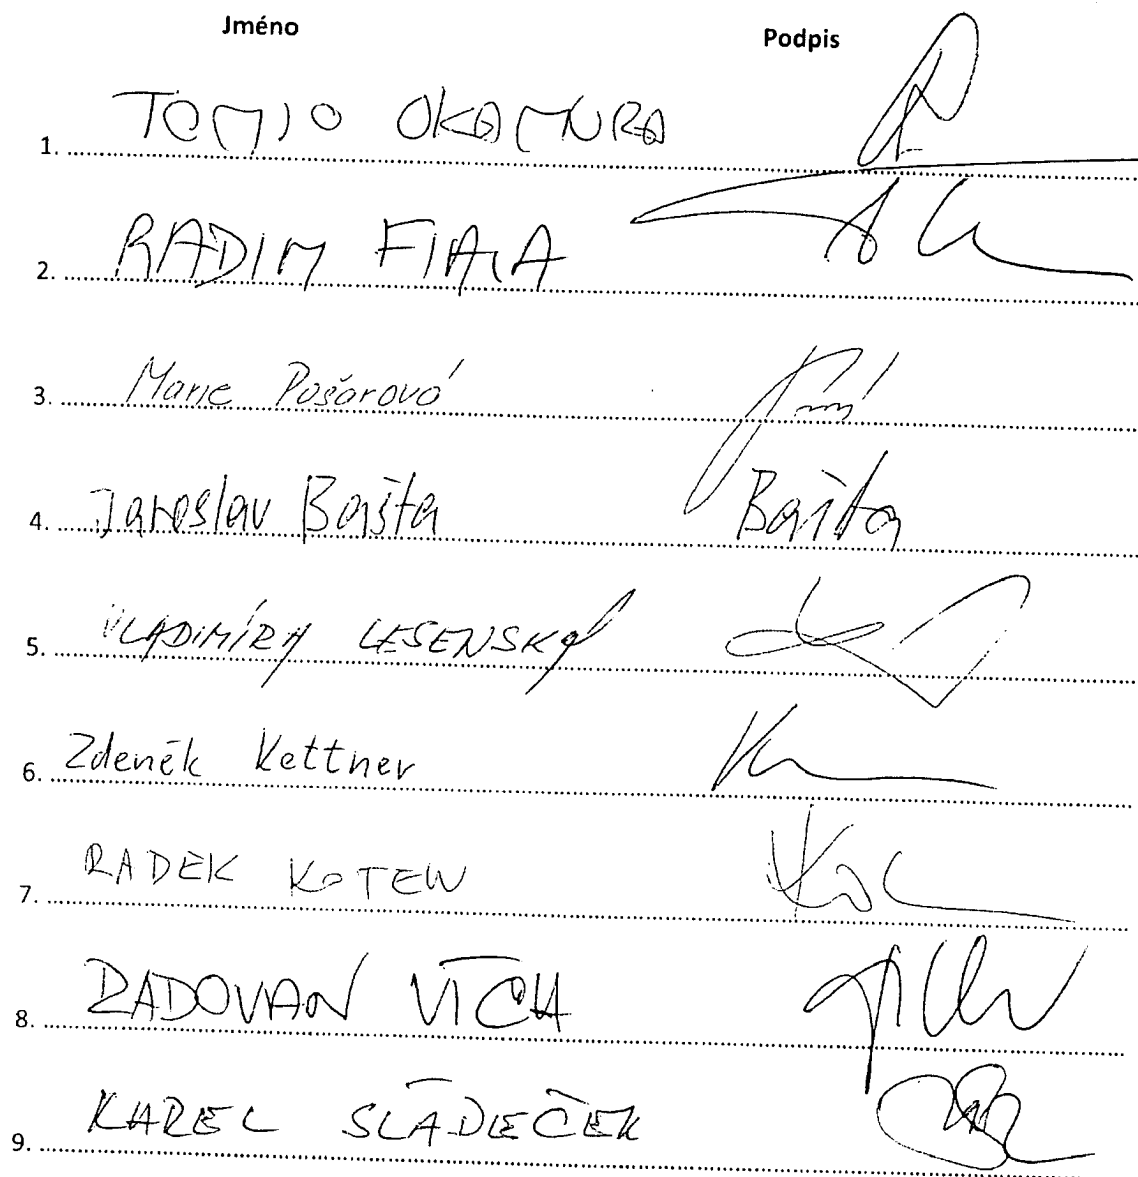 Jméno Podpis
1. TOMIO OKAMURA
2. RADIM FIALA
3. Marie Pošarová
4. Jaroslav Bašta Bašta
5. VLADIMÍRA LESENSKÁ
6. Zdeněk Kettner
7. RADEK KOTEN
8. RADOVAN VÍCH
9. KAREL SLÁDEČEK